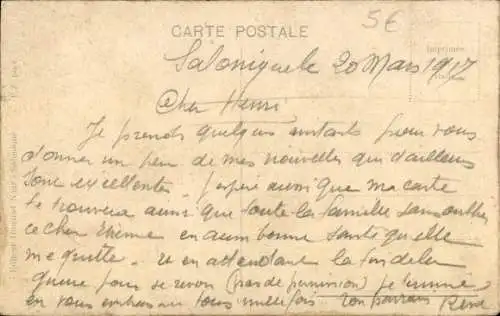 5€
CARTE POSTALE
Salonique le 20 Mars 1917
Cher Henri
Je prends quelques instants pour vous
donner un peu de mes nouvelles qui d'ailleurs
sont excellentes. J'espère aussi que ma carte
te trouvera ainsi que toute la famille sans oublier
ce cher Etienne en aussi bonne santé qu'elle
me quitte. et en attendant la fin de la
guerre pour se revoir (pas de permission) je termine
en vous embrassant tous mille fois René